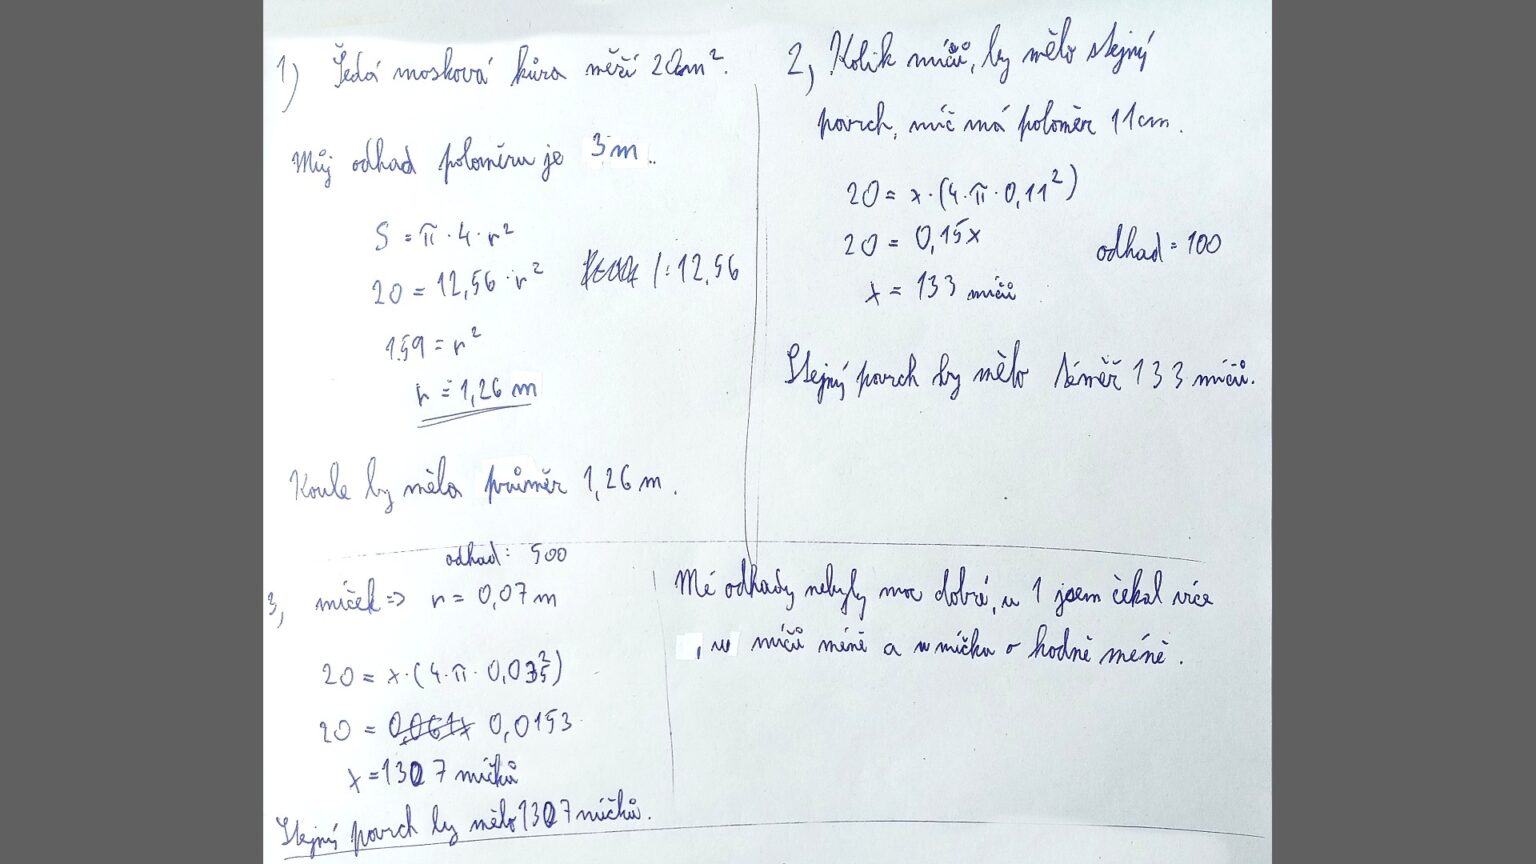 1) Šedá mosková kůra měří 20m².
Můj odhad poloměru je 3m.
S = π · 4 · r²
20 = 12,56 · r² /:12,56
1.59 = r²
r = 1,26 m
Koule by měla průměr 1,26 m.
2, Kolik míčů, by mělo stejný
povrch, míč má poloměr 11cm.
20 = x · (4 · π · 0,11²)
20 = 0,15x odhad = 100
x = 133 míčů
Stejný povrch by mělo téměř 133 míčů.
odhad: 500
3, míček => r = 0,07 m
20 = x · (4 · π · 0,035²)
20 = 0,0153
x = 1307 míčků
Stejný povrch by mělo 1307 míčků.
Mé odhady nebyly moc dobré, u 1 jsem čekal více
, u míčů méně a u míčku o hodně méně.